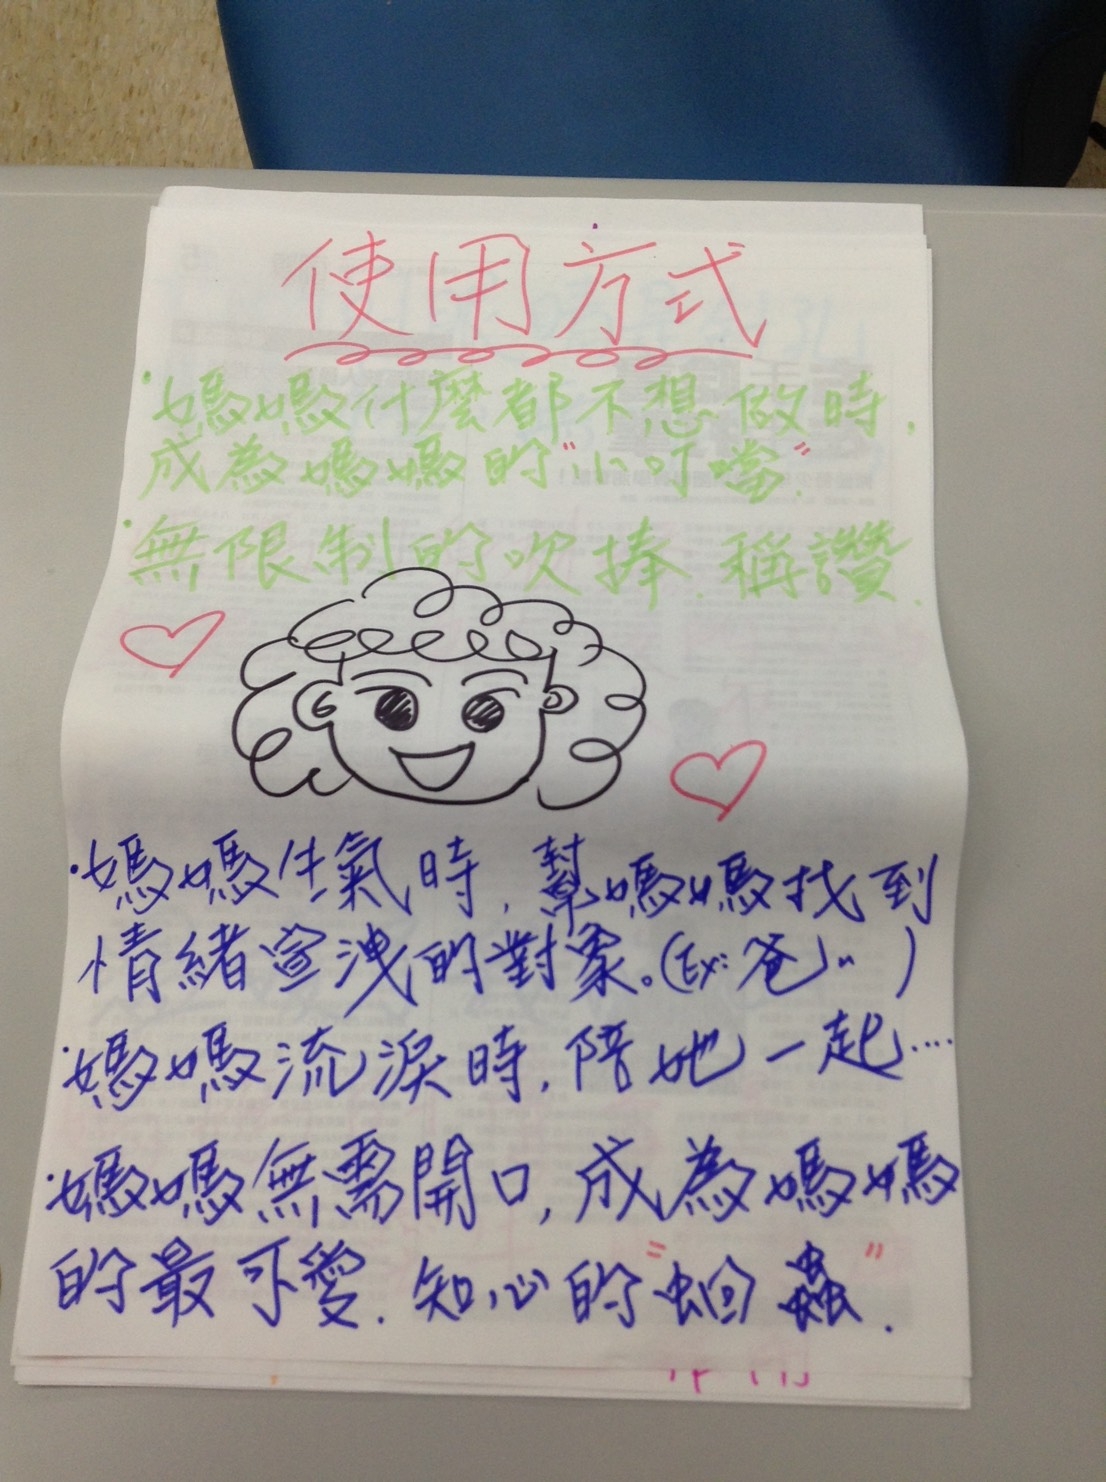 使用方式
·媽媽什麼都不想做時,
成為媽媽的"小叮噹".
·無限制的吹捧.稱讚.
·媽媽生氣時,幫媽媽找到
情緒宣洩的對象。(Ex:爸爸)
·媽媽流淚時,陪她一起....
·媽媽無需開口,成為媽媽
的最可愛.知心的"蛔蟲".